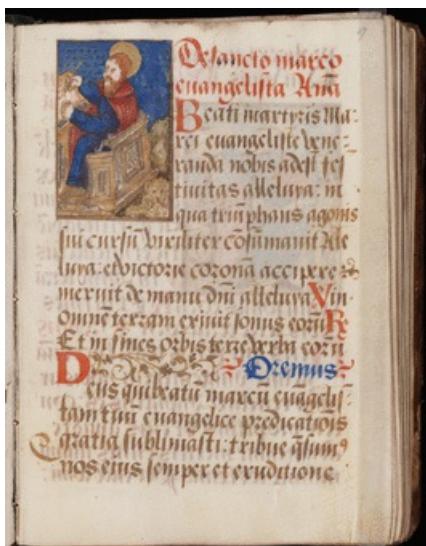 De sancto marco
euangelista Añа
Beati martyris Mar
cei euangeliste vene-
randa nobis adest fes
tiuitas alleluya: in
qua triuphans agonis
sui cursũ viriliter cõsumauit Ale
luya: et victorie coronã accipere
meruit de manu dñi alleluya V In
omnem terram exiuit sonus eorũ R
Et in fines orbis terre verba eorũ
Oremus
Deus qui beatũ marcũ euãgelis
tam tuũ euangelice predicatiõis
gratia sublimasti: tribue q̃sum9
nos eius semper et eruditione